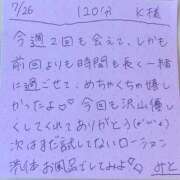 7/26 120分 K様
今週2回も会えて、しかも
前回よりも時間も長く一緒
に過ごせて、めちゃくちゃ嬉し
かったよ♡ 今回も沢山優し
くしてくれてありがとう(≧▽≦)
次はまだ試してないローション
お風呂でしてみよ♡
みと